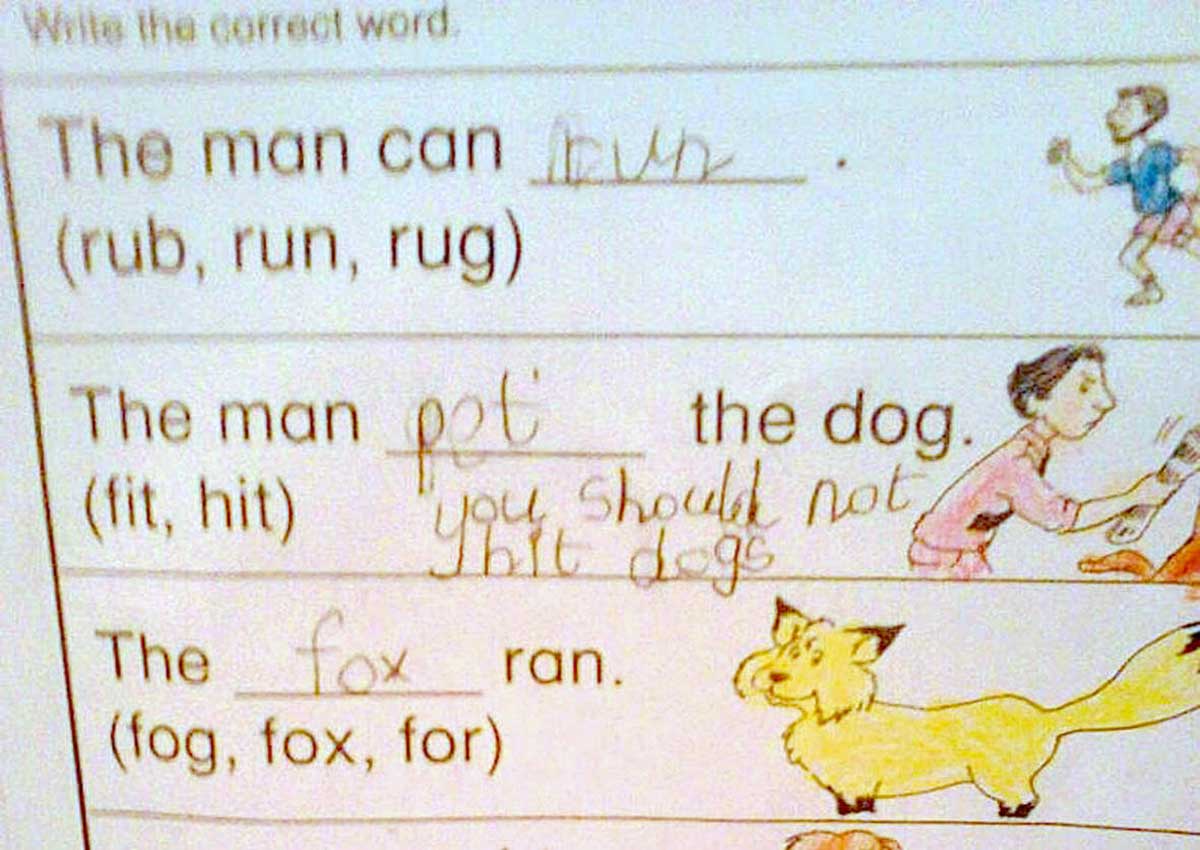 Write the correct word.
The man can run .
(rub, run, rug)
The man pat the dog.
(fit, hit) you should not
hit dogs
The fox ran.
(fog, fox, for)